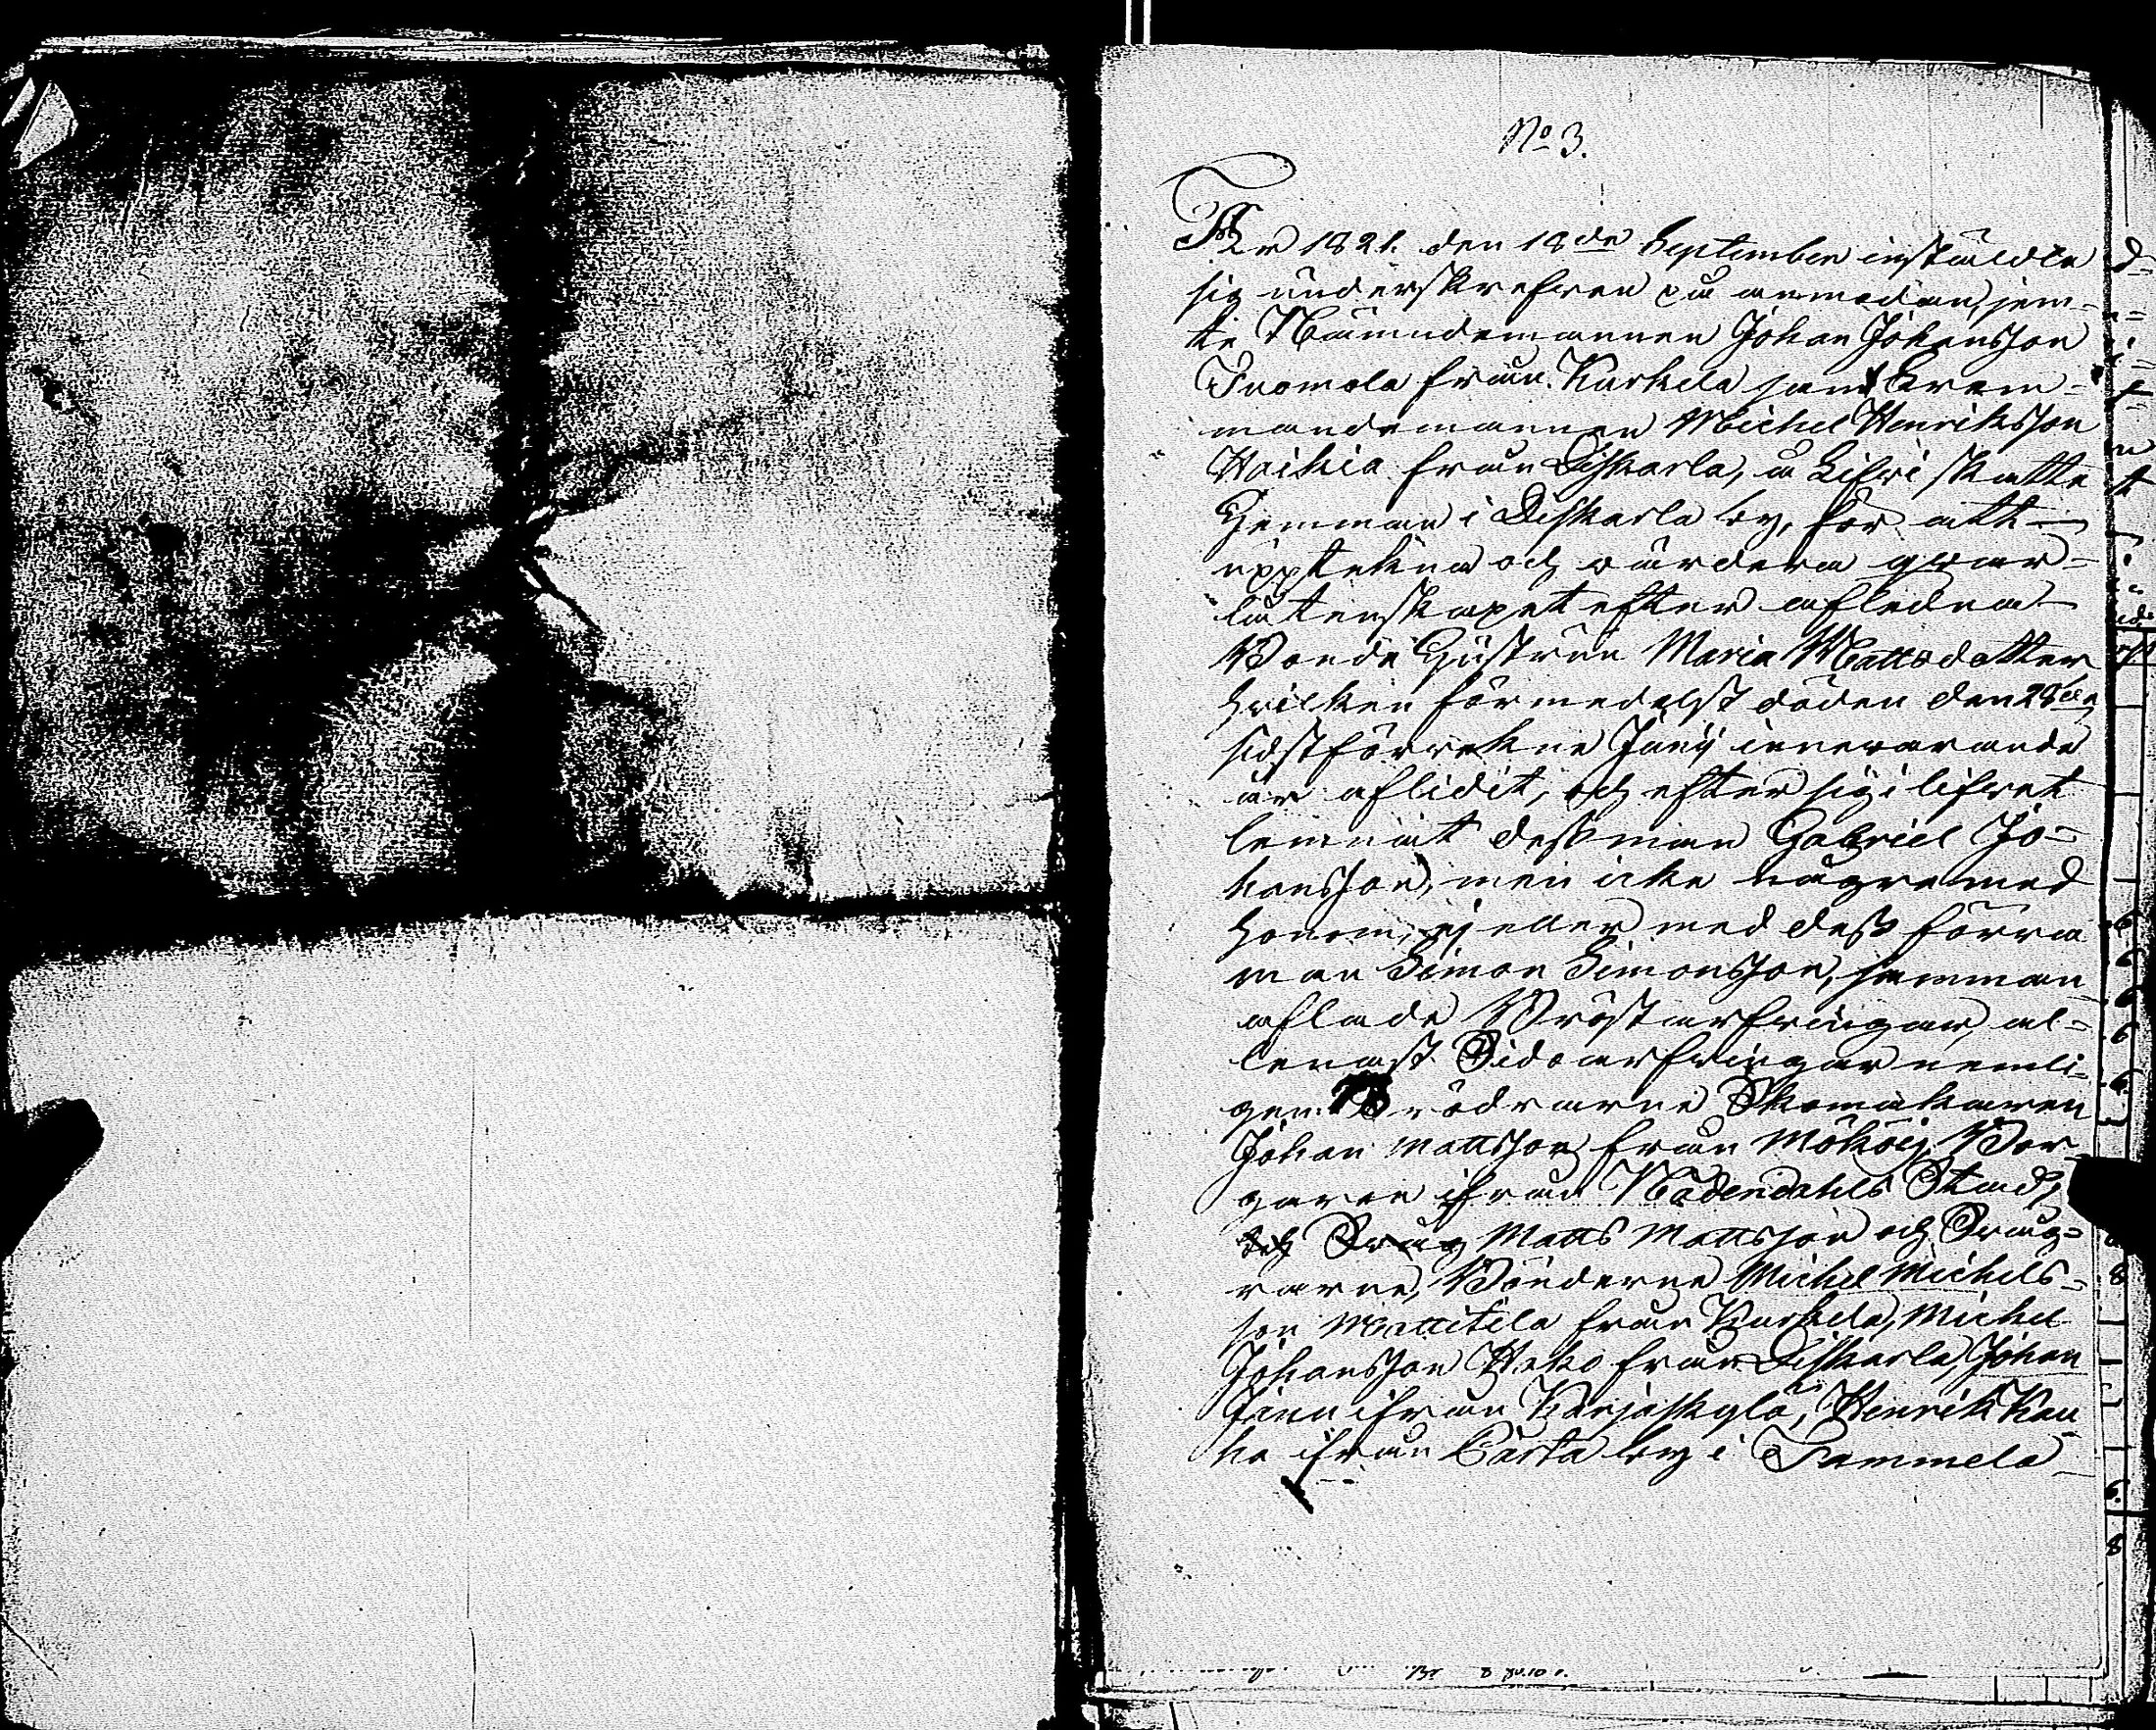 No 3.
År 1821. den 18de September instäldte
sig underskrefven på anmodan, jem-
te Nämndemannen Johan Johansson
Tuomola från Karkela samt Brem-
mandemannen Michel Henriksson
Haikia från Diskarla, å Lifri skatte
Hemman i Diskarla by, för att
upptekna och värdera qvar-
låtenskapet efter aflidna
Bonde Hustrun Maria Mattsdotter
hvilken förmedelst döden den 28de
sidstförvekne Junij innevarande
år aflidit, och efter sig i lifvet
lemnat dess man Gabriel Jo-
hansson, men icke någre med
honom, ej eller med dess förra
man Simon Simonsson, samman
aflade Bröstarfvingar, al-
lenast Sidoarfvingar nemli-
gen: Brödrarne Skomakaren
Johan Mattsson från Mököis, Bor-
garen ifrån Nådendahls Stad,
och Matts Mattsson och Svåg-
rarne, Bönderne Michel Michels-
son Mattitila från Karkela, Michel
Johansson Heko från Diskarla, Johan
Jānu ifrån Karjaskylä, Henrik Kau
ha ifrån by i Tammela